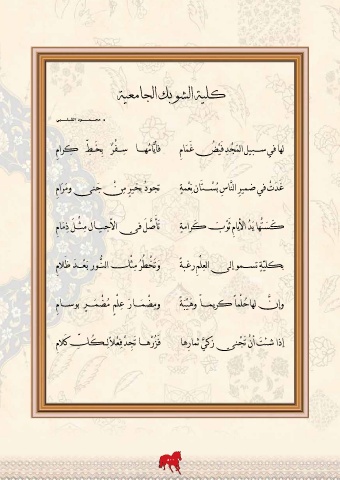 كلية الشوبك الجامعية
د. محمود الشلبي
لها في سبيل المَجْدِ فَيْضُ غَمَامِ فأيّامُها سِفْرٌ بِخَطِّ كِرامِ
غَدَتْ في ضميرِ النّاسِ بُسْتانَ نِعْمةٍ تجودُ بخيرٍ مِنْ جَنى ومَرامِ
كَسَتْها يَدُ الأيامِ ثَوْبَ كَرامةٍ تأصَّلَ في الأجيالِ مِثْلَ ذِمَامِ
بكليّةٍ تسمو إلى العِلْمِ رغبةً وتَخْطُرُ مِثْلَ النُّورِ بَعْدَ ظلامِ
وإنَّ لها حُلْماً كريماً وهَيْبَةً ومِضْمَارَ عِلْمٍ مُضْمَرٍ بوسامِ
إذا شئتَ أنْ تَجْني زكيَّ ثمارِها فَزُرْها تَجِدْ فِعْلاً لكلِّ كَلامِ